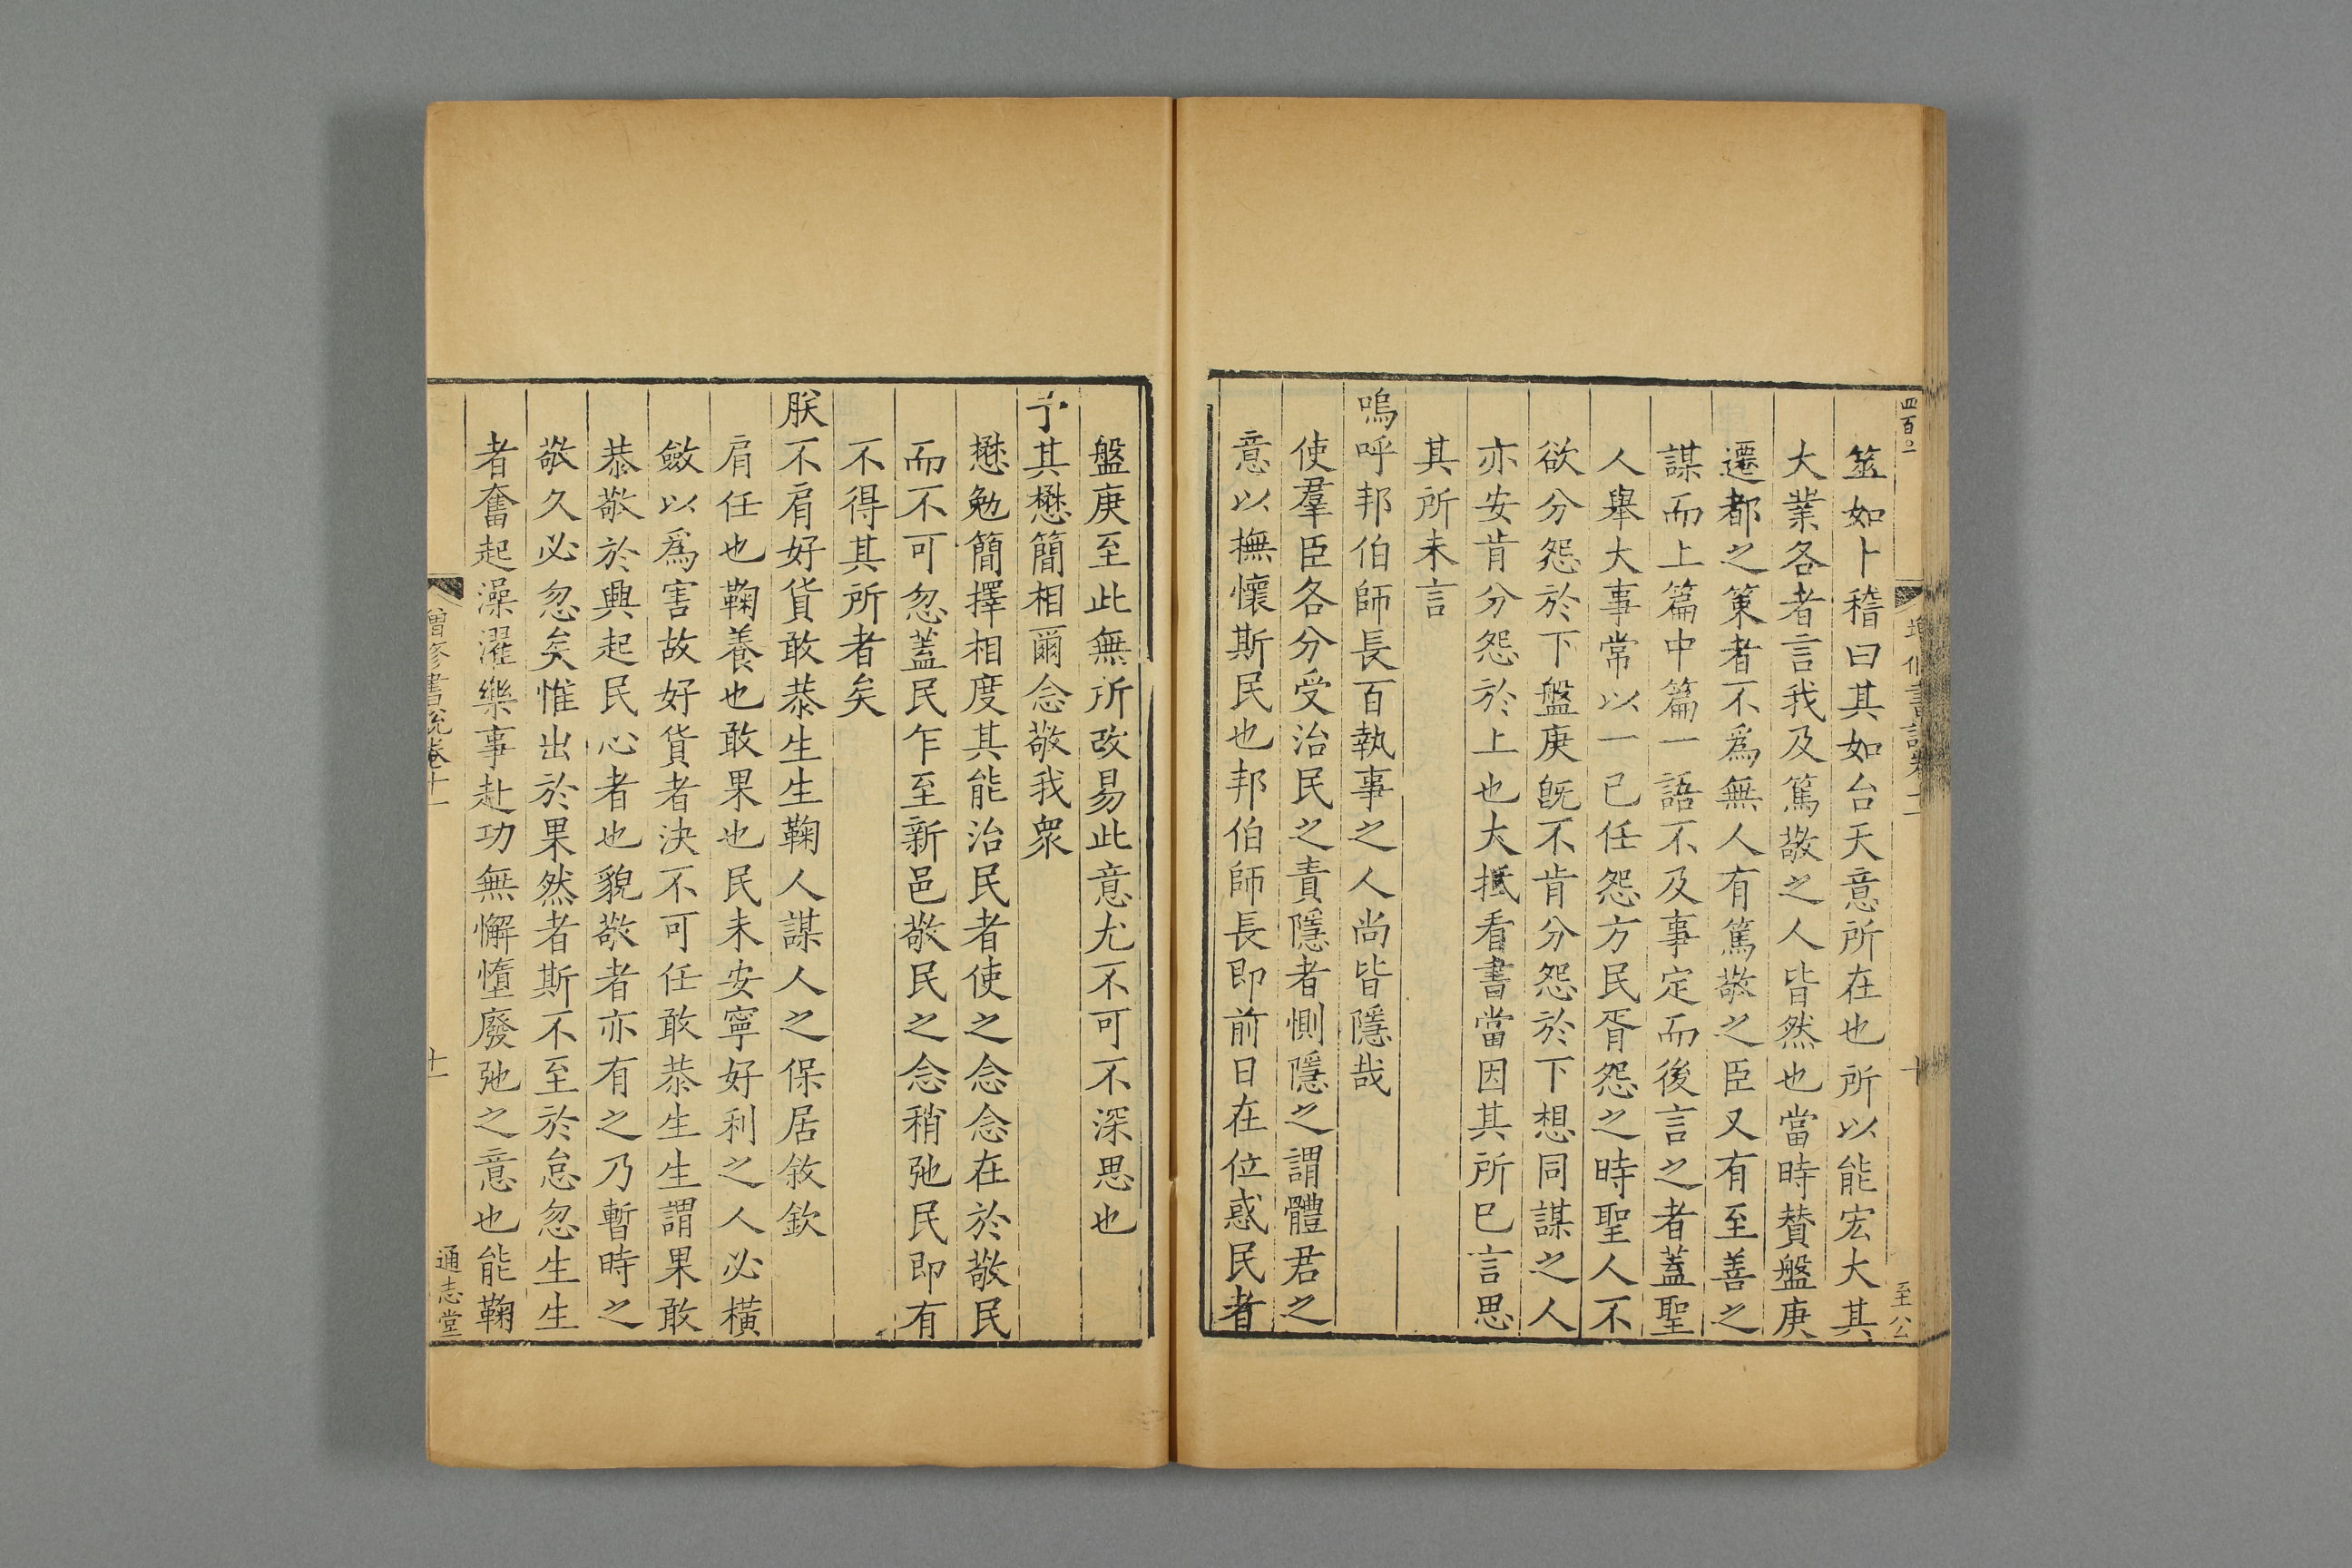 四百
筮如卜稽曰其如台天意所在也所以能宏大其
大業各者言我及篤敬之人皆然也當時賛盤庚
遷都之策者不為無人有篤敬之臣又有至善之
謀而上篇中篇一語不及事定而後言之者蓋聖
人舉大事常以一已任怨方民胥怨之時聖人不
欲分怨於下盤庚既不肯分怨於下想同謀之人
亦安肯分怨於上也大抵看書當因其所已言思
其所未言
嗚呼邦伯師長百執事之人尚皆隱哉
使羣臣各分受治民之責隱者惻隱之謂體君之
意以撫懷斯民也邦伯師長即前日在位惑民者
盤庚至此無所改易此意尤不可不深思也
予其懋簡相爾念敬我衆
懋勉簡擇相度其能治民者使之念念在於敬民
而不可忽蓋民乍至新邑敬民之念稍弛民即有
不得其所者矣
朕不肩好貨敢恭生生鞠人謀人之保居敘欽
肩任也鞠養也敢果也民未安寧好利之人必橫
斂以為害故好貨者決不可任敢恭生生謂果敢
恭敬於興起民心者也貌敬者亦有之乃暫時之
敬久必忽矣惟出於果然者斯不至於怠忽生生
者奮起澡濯樂事赴功無懈惰廢弛之意也能鞠
增修書說卷十一
十一
通志堂